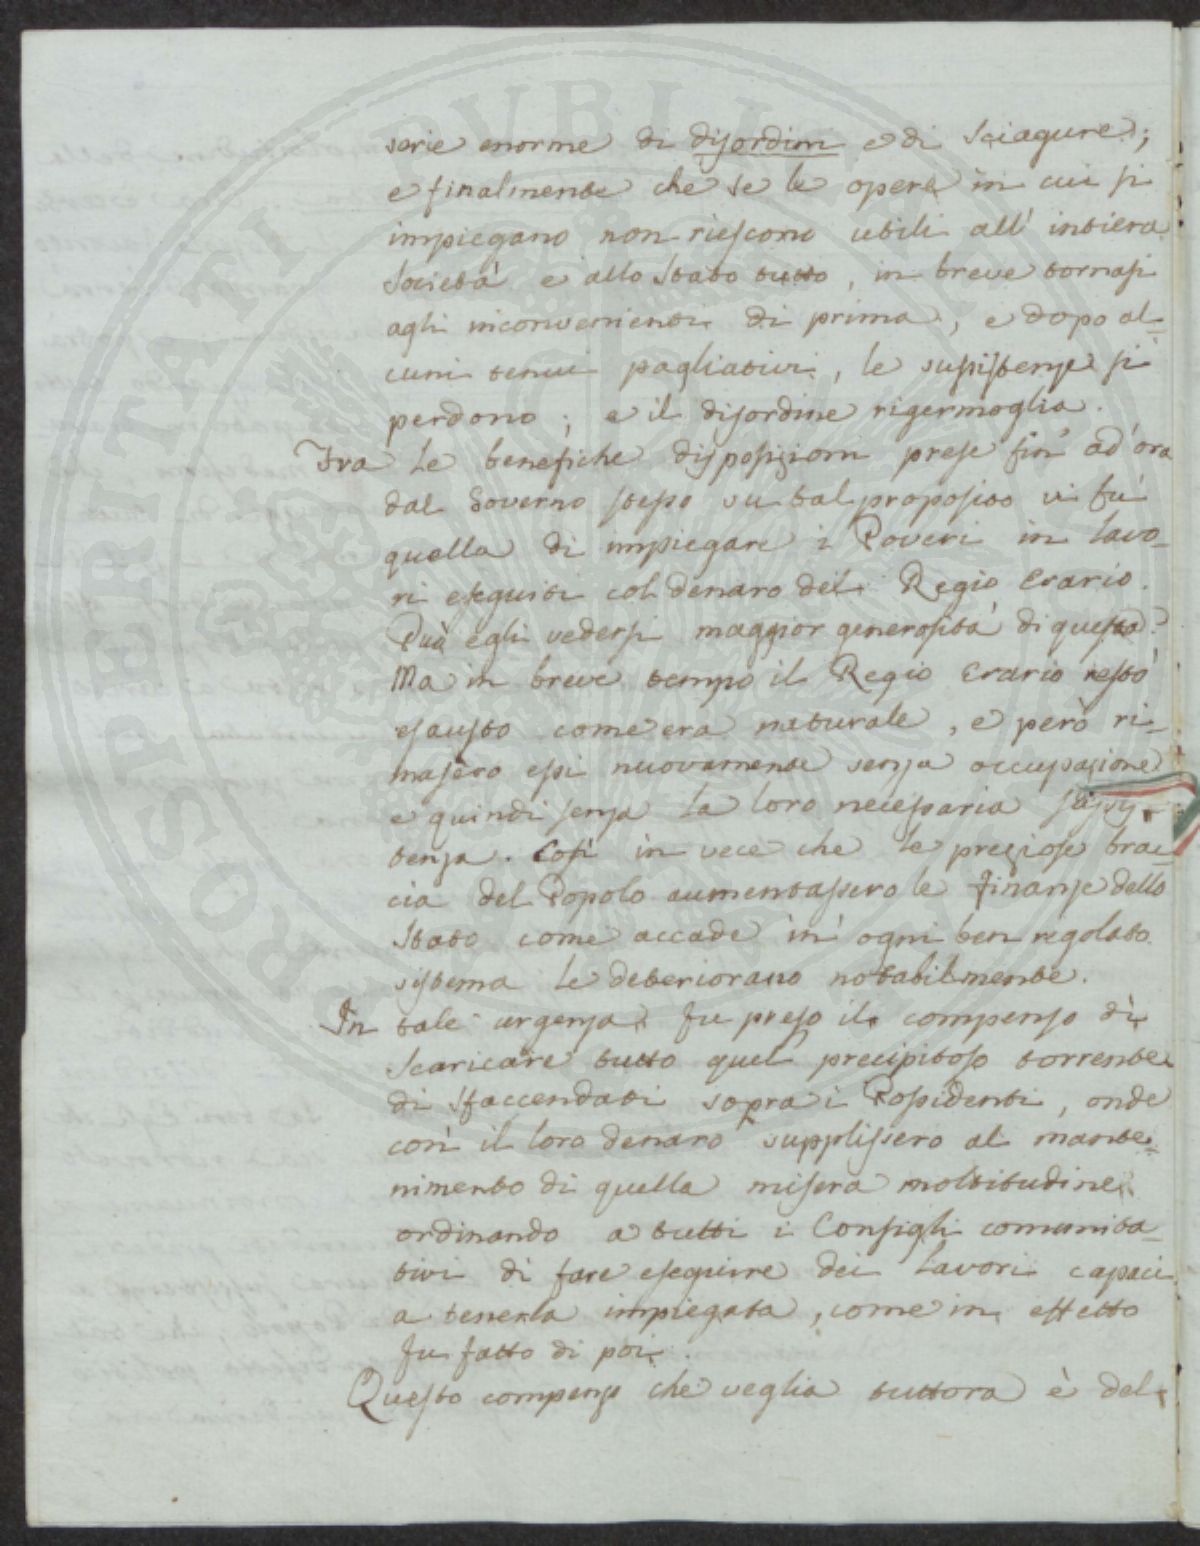 serie enorme di disordini e di Sciagure;
e finalmente che se le opere in cui si
impiegano non riescono utili all' intiera
Società e allo Stato tutto, in breve tornasi
agli inconvenienti di prima, e dopo al-
cuni tenui pagliativi, le susistenze si
perdono; e il disordine rigermoglia.
Fra le benefiche disposizioni prese fin' ad'ora
dal Governo stesso su tal proposito vi fu
quella di impiegare i Poveri in lavo-
ri eseguiti col denaro del Regio Erario.
Può egli vedersi maggior generosità di questa?
Ma in breve tempo il Regio Erario restò
esausto come era naturale, e però ri-
masero essi nuovamente senza occupazione
e quindi senza la loro necessaria
tenza. Così in vece che le preziose brac-
cia del Popolo aumentassero le finanze dello
Stato come accade in ogni ben regolato
sistema le deteriorano notabilmente.
In tale urgenza fu preso il compenso di
Scaricare tutto quel precipitoso torrente
di sfaccendati sopra i Possidenti, onde
con il loro denaro supplissero al mante-
nimento di quella misera moltitudine
ordinando a tutti i Consigli comunita-
tivi di fare eseguire dei lavori capaci
a tenerla impiegata, come in effetto
fu fatto di poi.
Questo compenso che veglia tuttora è del
PROSPERITATI PUBLICAE